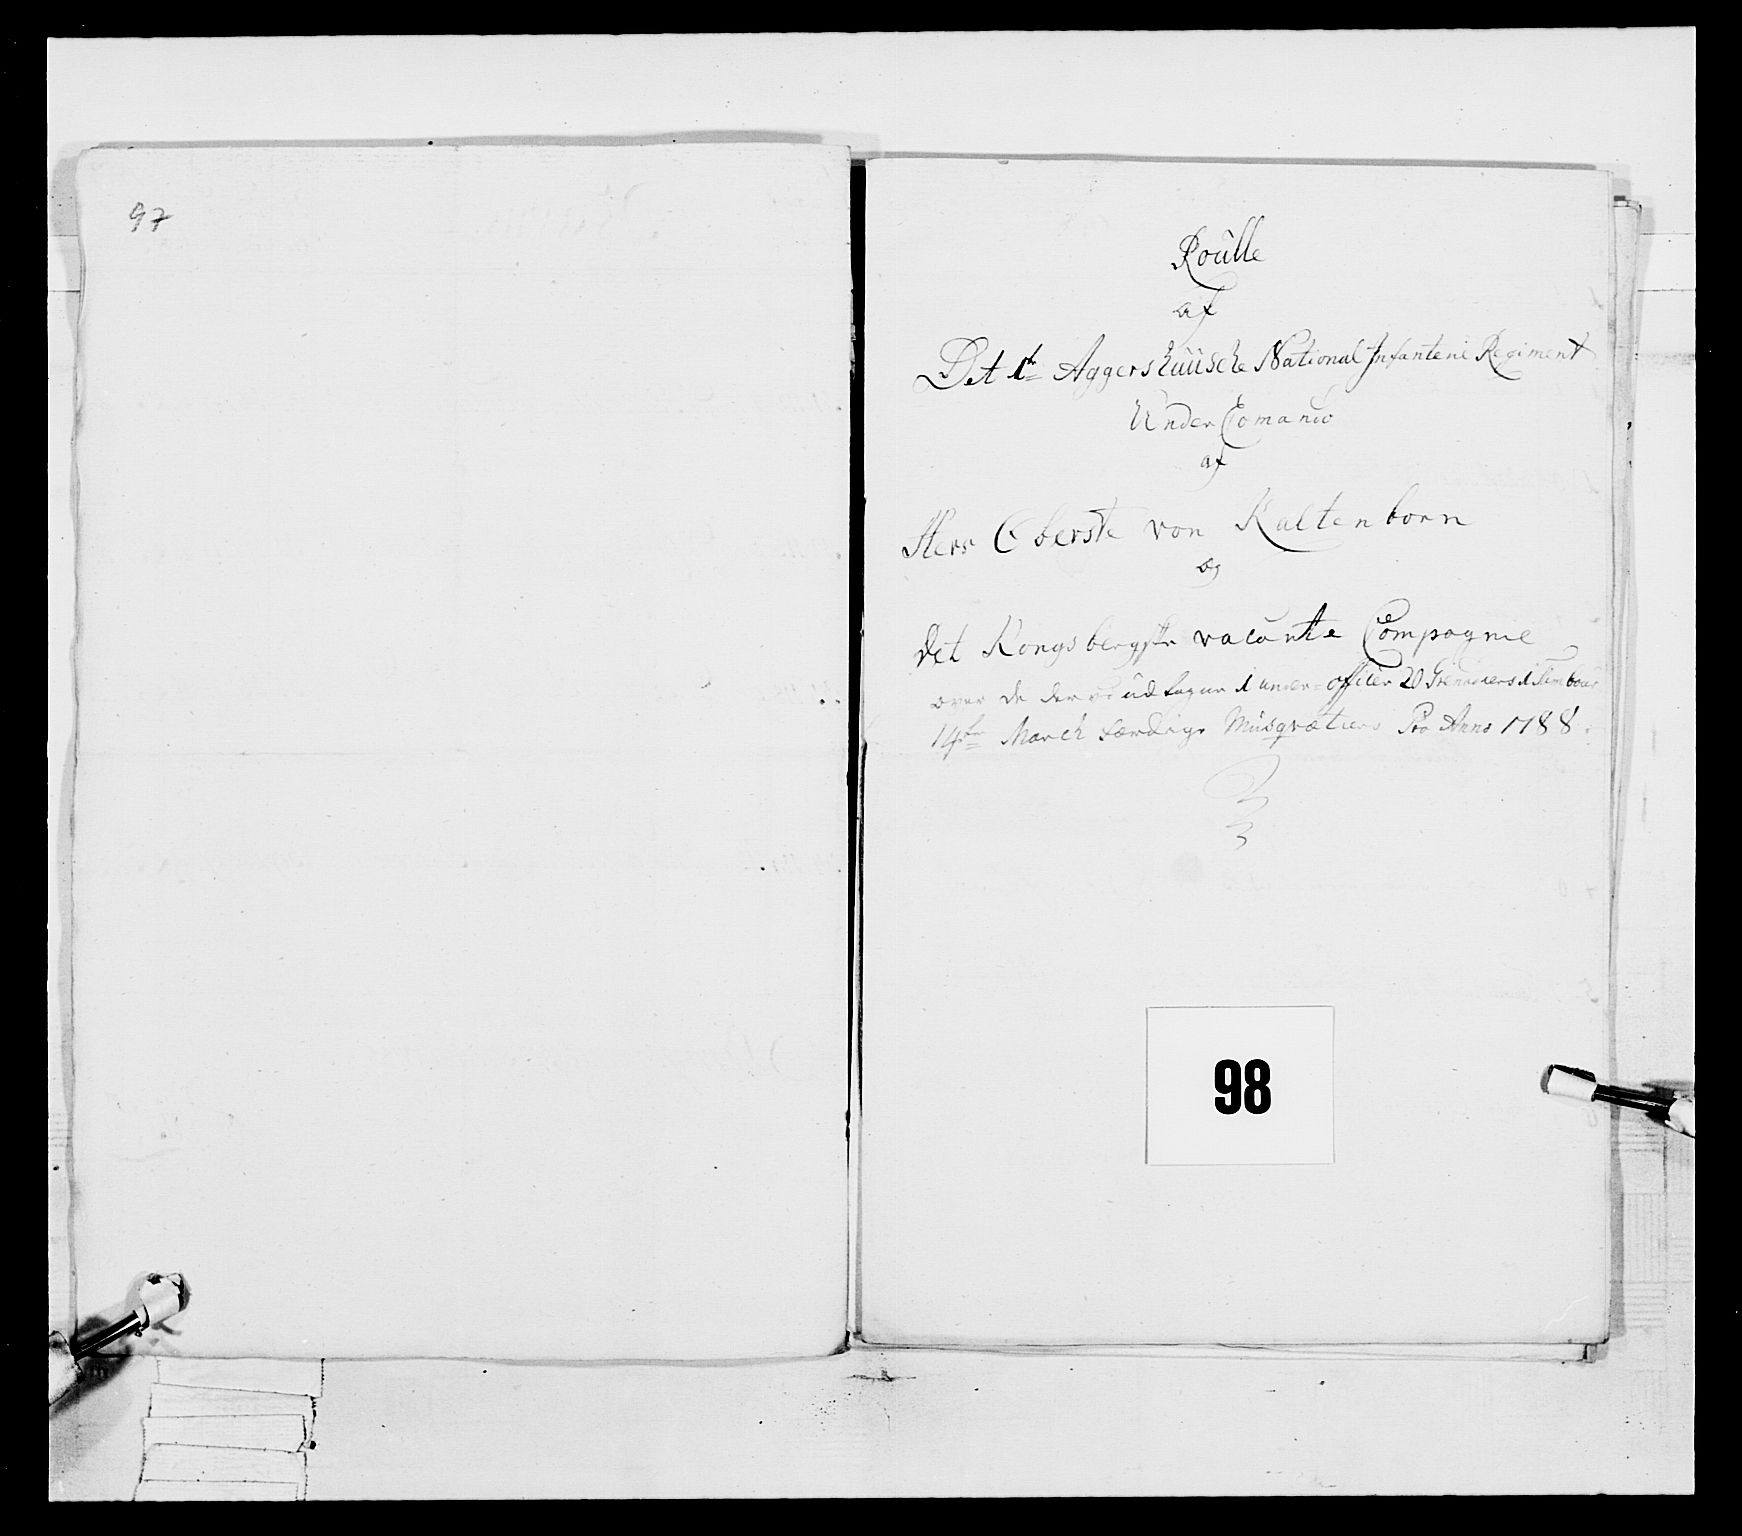 97
Roulle
af
Det 1te Aggershuusche National Infanterie Regiment
Under Comando
af
Herr Oberste von Kaltenborn
og
Det Kongsbergske vacante Compagnie
over de der ved udtagne 1 under-officier 20 Grenaders 1 Tambour
14ten March færdige Musqvætiers Pro Anno 1788.
98